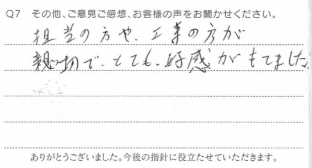 Q7 その他、ご意見ご感想、お客様の声をお聞かせください。
担当の方や、工事の方が
親切で、とても、好感がもてました。
ありがとうございました。今後の指針に役立たせていただきます。